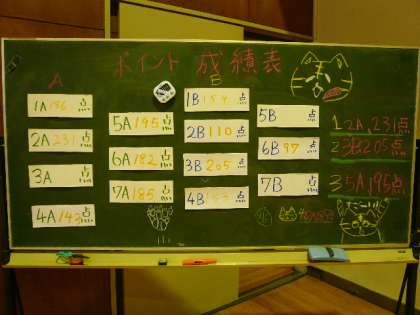 ポイント 成績表
A
1A 186点
2A 231点
3A 点
4A 143点
5A 195点
6A 182点
7A 185点
B
1B 154点
2B 110点
3B 205点
4B 点
5B 点
6B 97点
7B 点
1 2A,231点
2 3B 205点
3 5A,195点